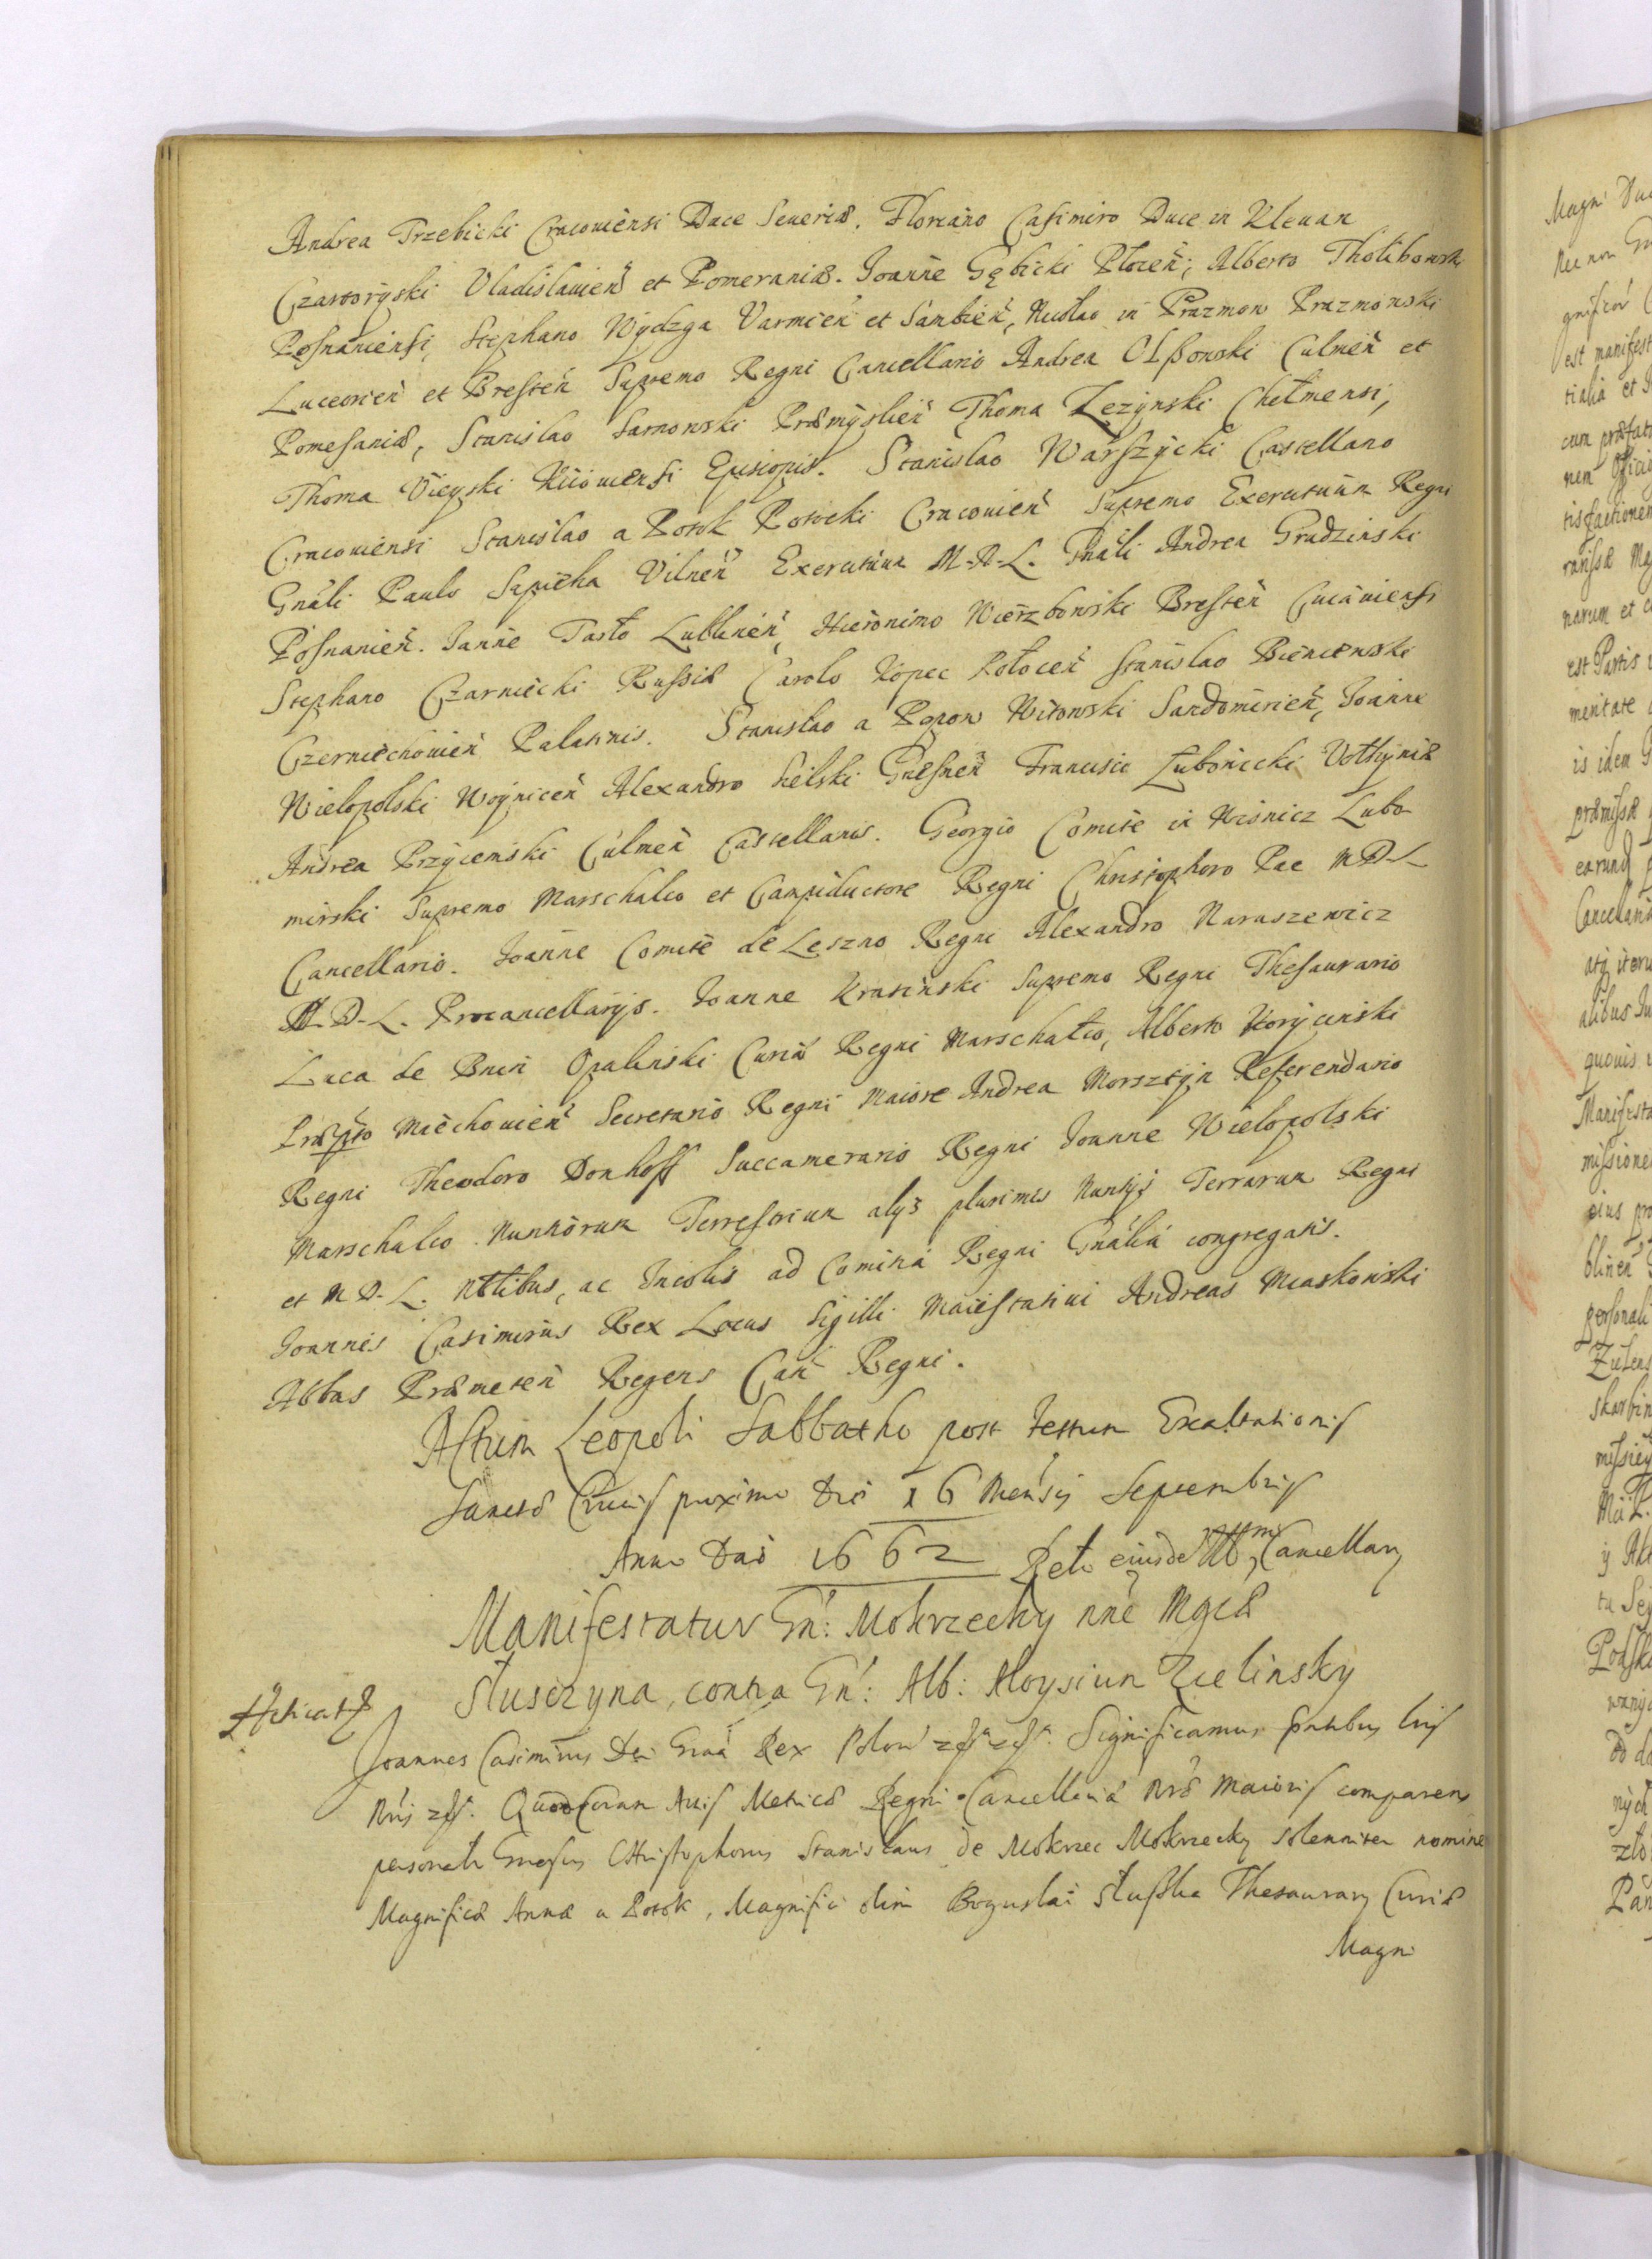 Andrea Trzebicki Cracouiensi Duce Seueriæ. Floriano Casimiro Duce in Klewan
Czartoryski Vladislauień et Pomeraniæ. Joanne Gębicki Płoceń; Alberto Tholibowski
Posnaniensi, Stephano Wydzga Varmień et Sambień, Nicolao in Prazmow Prazmowski
Luceorień et Bresteń Supremo Regni Cancellario Andrea Olszowski Culmeń et
Pomesaniæ, Stanislao Sarnowski Præmyslień Thoma Lezynski Chełmensi,
Thoma Vieyski Kiiouiensi Episcopis. Stanislao Warszycki Castellano
Cracouiensi Stanislao a Potok Potocki Cracouień Supremo Exercituum Regni
Gnáli Paulo Sapieha Vilneń Exercituum M.D.L. Gnáli Andrea Grudzinski
Posnanień. Janne Tarło Lublineń, Hieronimo Wierzbowski Bresteń Cuiauiensi
Stephano Czarniecki Russiæ Carolo Kopec Połoceń Stanislao Bieniewski
Czerniechouień Palatinis. Stanislao a Pepow Witowski Sandomirień, Joanne
Wielopolski Woyniceń Alexandro Sielski Gnesneń Francisco Lubonicki Vołhyniæ
Andrea Przyiemski Culmeń Castellanis. Georgio Comite in Wisnicz Lubo-
mirski Supremo Marschalco et Campiductore Regni Christophoro Pac M D L
Cancellario. Joanne Comite de Leszno Regni Alexandro Naruszewicz
M.D.L. Procancellarijs. Joanne Krasinski Supremo Regni Thesaurario
Luca de Bnin Opalinski Curiæ Regni Marschalco, Alberto Korycinski
Præpto Miechouień Secretario Regni Maiore Andrea Morsztyn Referendario
Regni Theodoro Donhoff Succamerario Regni Joanne Wielopolski
Marschalco Nuntiorum Terrestrium alijs plurimis Nuntijs Terrarum Regni
et M D. L. Nttibus, ac Incolis ad Comitia Regni Gnália congregatis.
Joannis Casimirus Rex Locus Sigilli Maiestatiui Andreas Miaskowski
Abbas Præmeteń Regens Can Regni.
Actum Leopoli Sabbatho post Festum Exaltationis
Sanctæ Crucis proximo Die 16 Mensis Septembris
Anno Dni 1662 eiusde Cancellarij
Manifestatur Gń: Mokrzecky nńe Mgcæ
Słusczyna, contra Gń: Alb: Aloysium Zielinsky
Joannes Casimirus Dei Grá Rex Polon Significamus
Quod Coram Actis Metricæ Regni Cancellariæ Nræ Maioris comparens
personaliter Christophorus Stanislaus de Mokrzec Mokrzecky solenniter nomine
Magnificæ Annæ a Potok, Magnifici olim Boguslai Słuszka Thesaurarij Curiæ
Magni